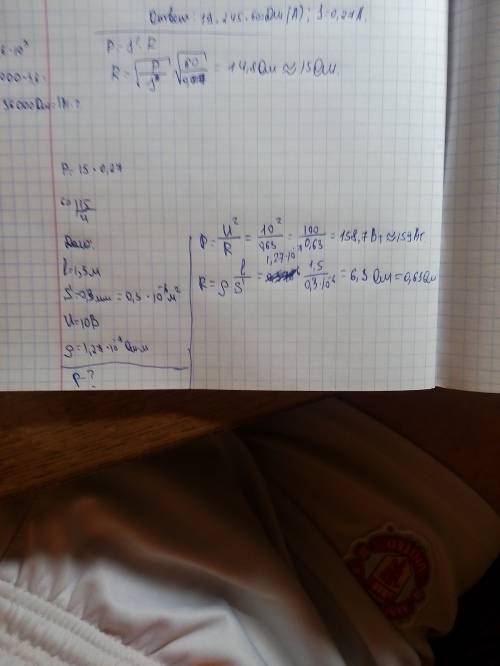 Ответ: 19.245.600Дж (А); I=0,27А.
P=I²·R
R=√P/I² √60/0,27 = 14,8Ом ≈ 15Ом
P=15·0,27
60 115/4
Дано:
l=1,5м
S=0,3мм=0,3·10⁻⁶м²
U=10В
ρ=1,27·10⁻⁷Ом·м
P-?
P=U²/R=10²/0,63=100/0,63=158,7Вт≈159Вт
R=ρ l/S=1,27·10⁻⁷ 1,5/0,3·10⁻⁶=6,3Ом=0,63Ом